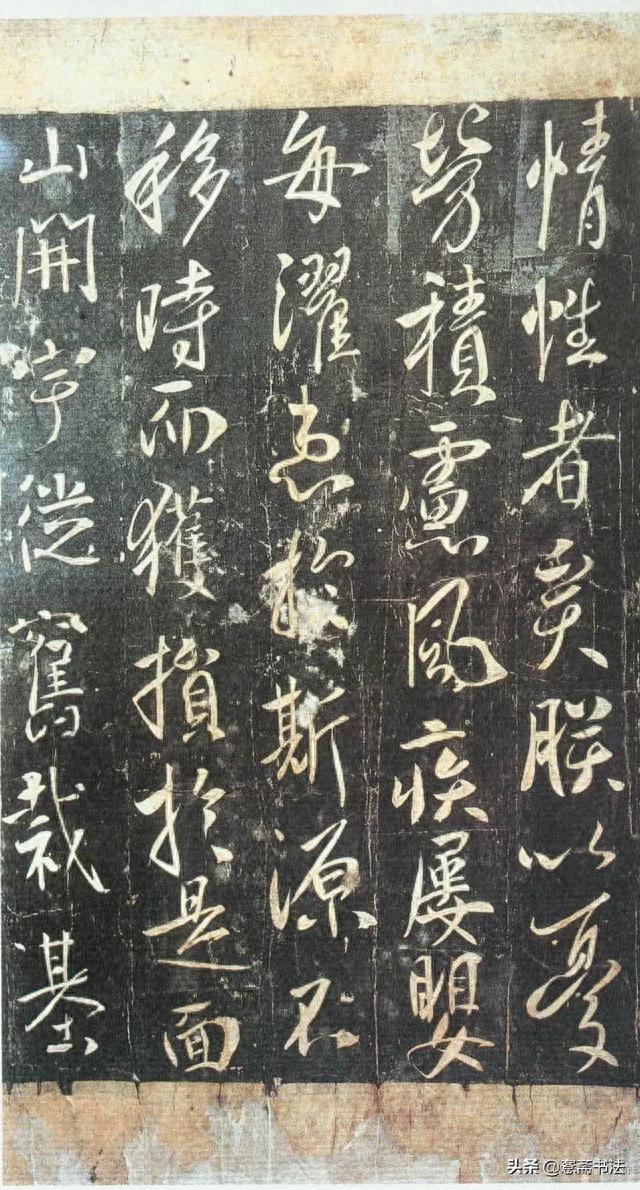 情性者矣朕以憂
勞積慮風疾屢嬰
每濯患於斯源不
移時而獲損於是面
山開宇從舊裁基
头条 @窓斋书法